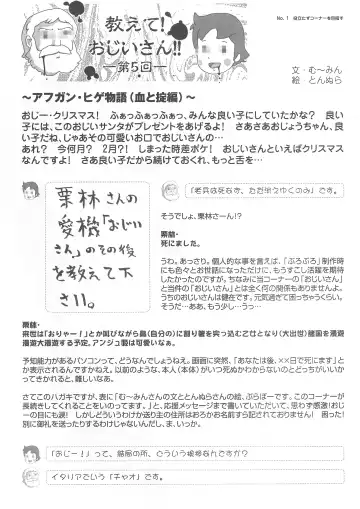 No. 1　役立たずコーナーを目指す
教えて!
おじいさん!!
―第5回―
文・む〜みん
絵　とんぬら
〜アフガン・ヒゲ物語(血と掟編)〜
おじー・クリスマス!　ふぉっふぉっふぉっ、みんな良い子にしていたかな?　良い
子には、このおじいサンタがプレゼントをあげるよ!　さあさあおじょうちゃん、良
い子だね、じゃあその可愛いお口でおじいさんの…
あれ?　今何月?　2月?!　しまった時差ボケ!　おじいさんといえばクリスマス
なんですよ!　さあ良い子だから続けておくれ、もっと舌を…
栗林さんの
愛機「おじい
さん」のその後
を教えて下
さい。
「老兵は死なず、ただ消えゆくのみ」です。
そうでしょ、栗林さーん!?
栗林・
死にました。
うわ。あっさり。個人的な事を言えば、「ぷろぷろ」制作時
にも色々とお世話になっただけに、もうすこし活躍を期待
したかったのですが。ちなみに当コーナーの「おじいさん」
と当件の「おじいさん」とは全く何の関係もありませんよ。
うちのおじいさんは健在です。元気過ぎて困っちゃうくらい。
そうだ…ああ、もう少し…うっ!
栗林・
来世は「おりゃー!」とか叫びながら鼻(自分の)に割り箸を突っ込む乙女となり(大出世)龍国を漫遊
漫遊大漫遊する予定。アンジュ製は可愛いなぁ。
予知能力があるパソコンって、どうなんでしょうねえ。画面に突然、「あなたは後、××日で死にます」と
か表示されるんですかねえ。以前のような、本人(本体)がいつ死ぬかわからないのとどっちがいいか
ってきかれると、難しいなあ。
さてこのハガキですが、表に「む〜みんさんの文ととんぬらさんの絵、ぶらぼーです。このコーナーが
長続きしてくれることをいのってます。」と、応援メッセージまで書いていただいて、思わず感激!おじ
ーの目にも涙!　しかしどういうわけか送り主の住所はおろかお名前すら記されておりません!　困った!
別に御礼を送ったりするわけじゃないんだし、ま、いっか。
「おじー!」って、結局の所、どういう挨拶なんですか?
イタリアでいう「チャオ」です。